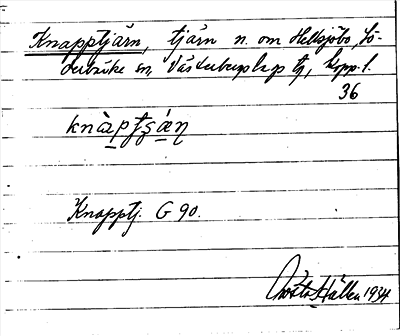 Knapptjärn, tjärn n. om Hellsjöbo, Sö-
derbärke sn, Västerbergslags tg, Kopp. l.
36
knàpt̬ʂǽn̥
Knapptj. G 90.
Gösta Hällen 1934